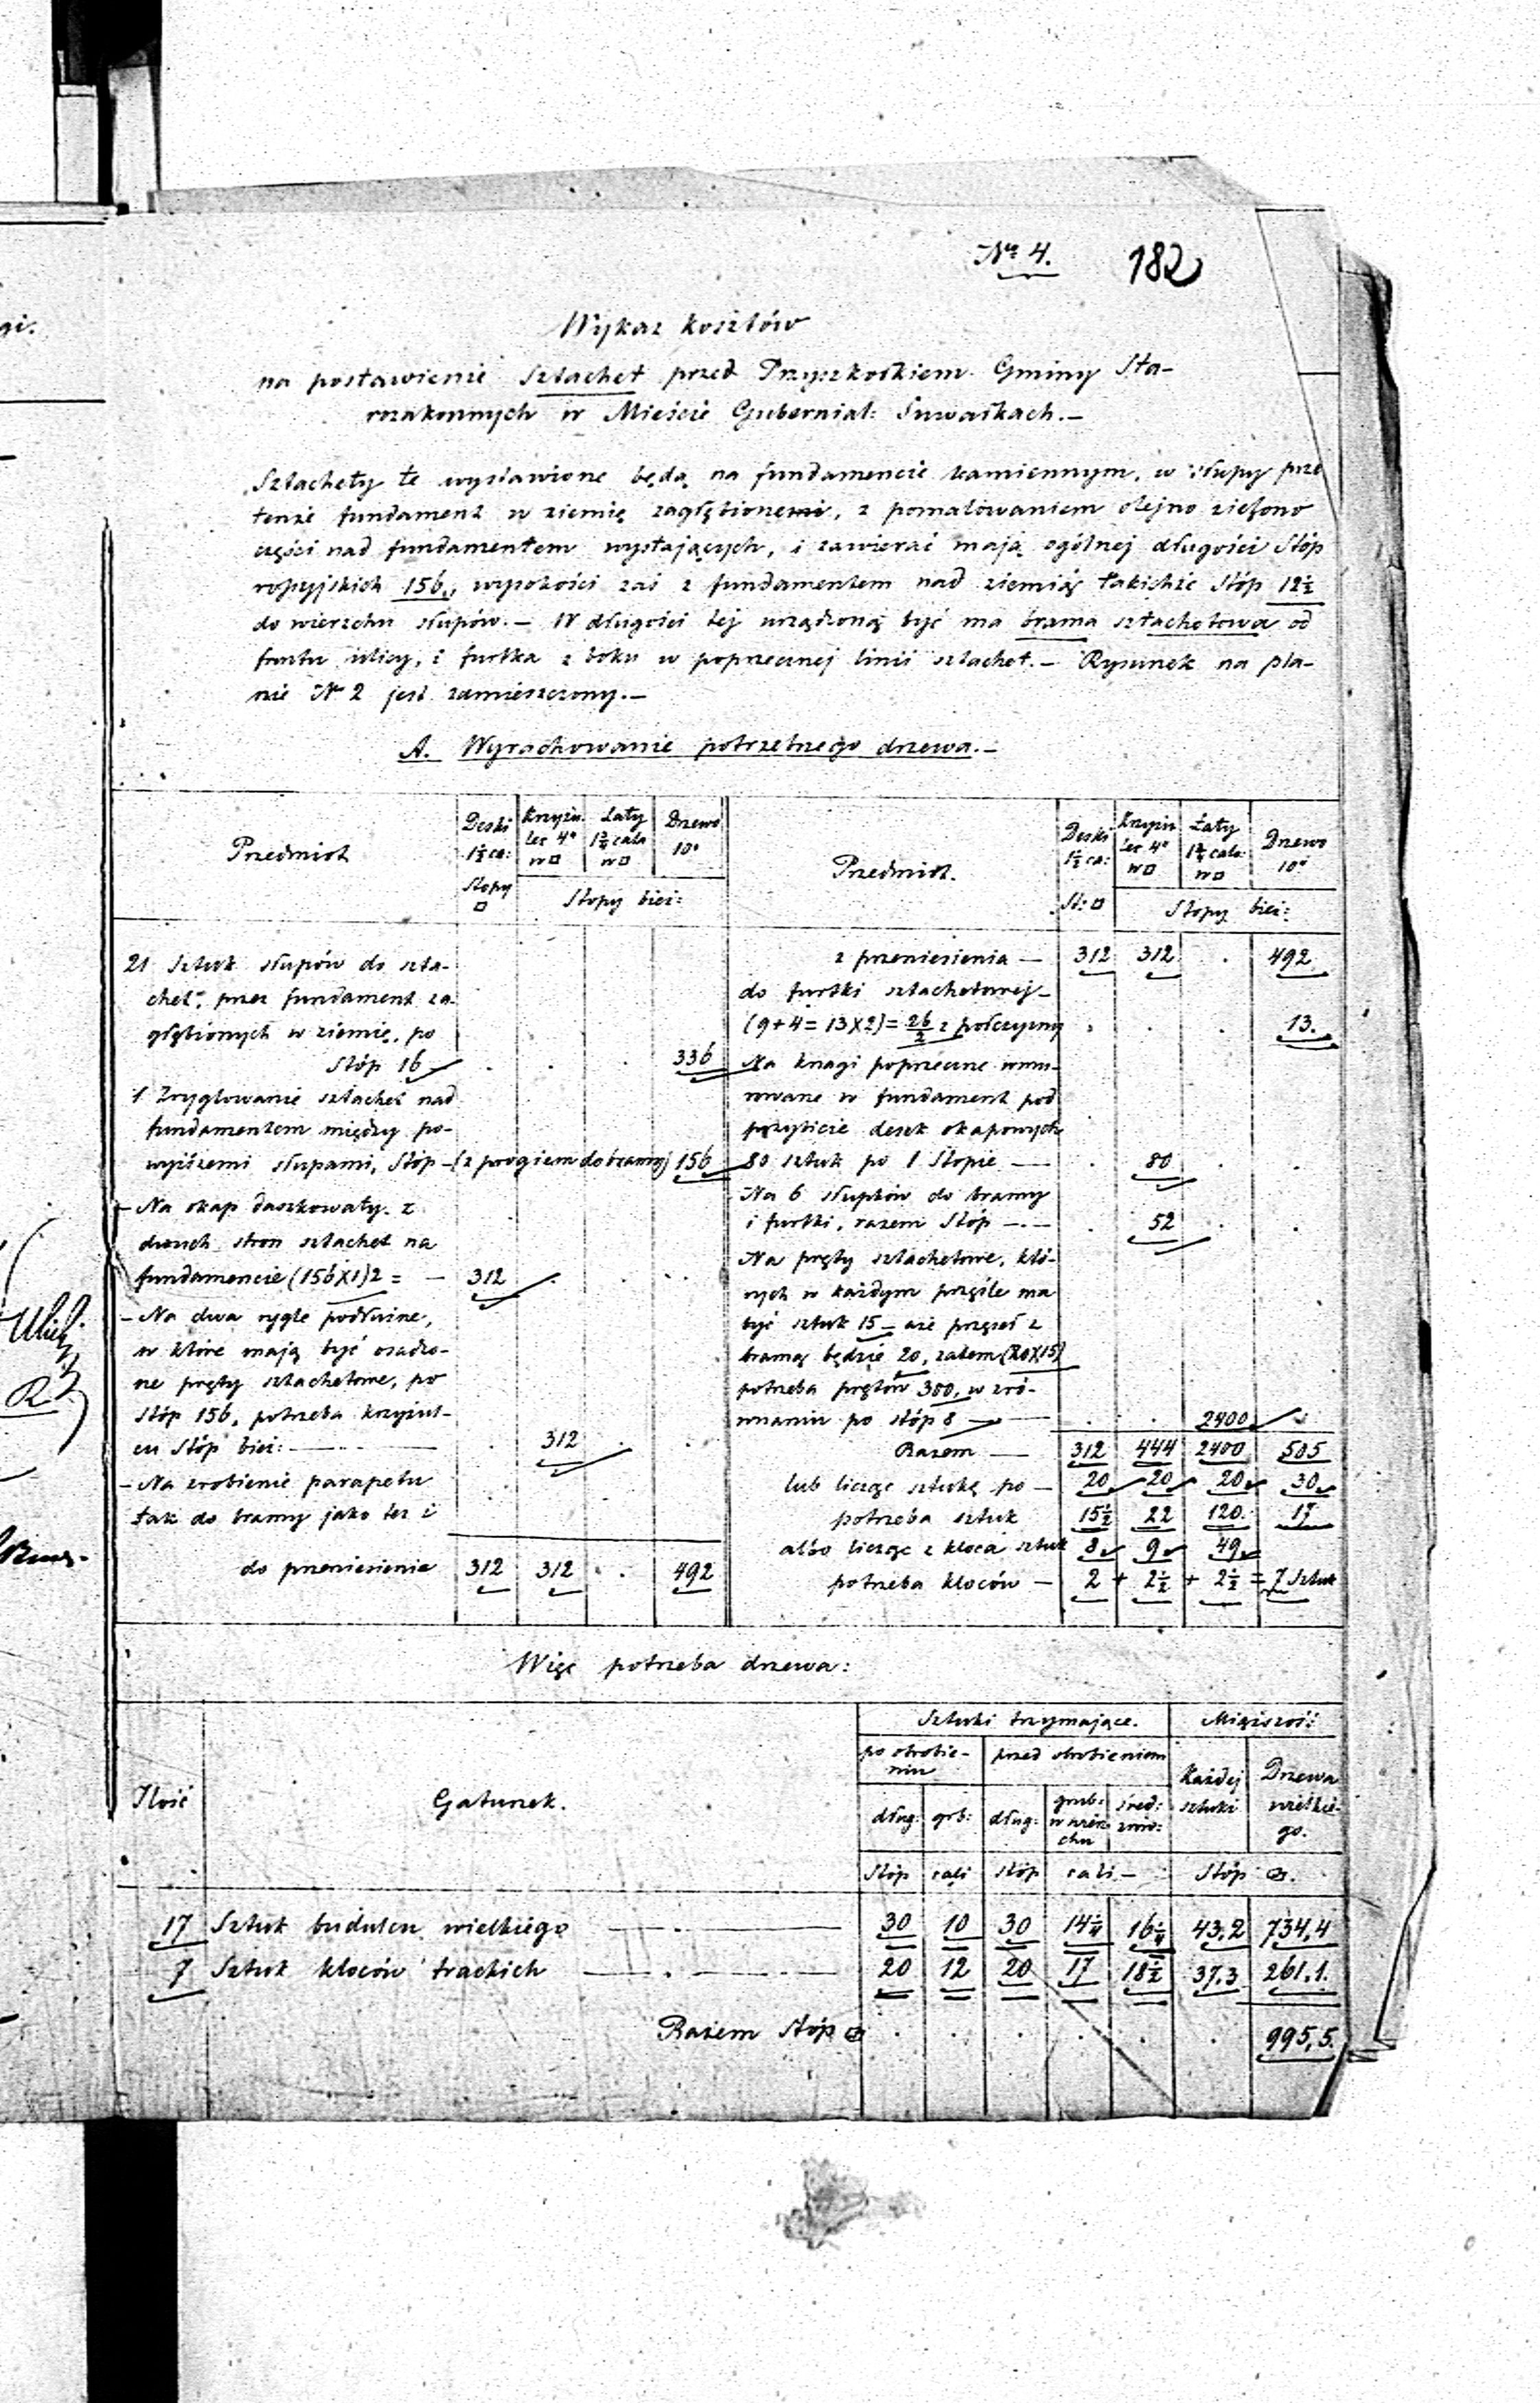 № 4. 182
Wykaz kosztów
na postawienie Sztachet przed Przyszkołkiem Gminy Sta-
rozakonnych w Mieście Gubernial: Suwałkach.—
Sztachety te wystawione będą na fundamencie kamiennym, w słupy prze
tenże fundament w ziemię zagłębione, z pomalowaniem olejno zielono
części nad fundamentem wystających, i zawierać mają ogólnej długości Stóp
rossyjskich 156, wysokości zaś z fundamentem nad ziemię takichże Stóp 12½
do wierzchu słupów.— W długości tej urządzoną być ma brama sztachetowa od
frontu ulicy, i furtka z boku w poprzecznej linii sztachet.— Rysunek na pla-
nie № 2 jest zamieszczony.—
A. Wyrachowanie potrzebnego drzewa.—
Przedmiot
Deski 1½ ca: Stopy □
Krzyżu-
lec 4" w □
Łaty 1¾ cala w □
Drzewo 10"
Stopy bież:
21 Sztuk słupów do szta-
chet, przez fundament za-
głębionych w ziemię, po
Stóp 16 . . . 336
1 Zryglowanie sztachet nad
fundamentem między po-
wyższemi słupami, Stóp — (z progiem do bramy) 156
— Na okap daszkowaty z
dwuch stron sztachet na
fundamencie (156×1)2 = — 312 . . .
— Na dwa rygle podłużne,
w które mają być osadzo-
ne pręty sztachetowe, po
Stóp 156, potrzeba krzyżul-
cu Stóp bież: — . 312 . .
— Na zrobienie parapetu
tak do bramy jako też i
do przeniesienia 312 312 . 492
Przedmiot.
Deski 1½ ca: St: □
Krzyżu
lec 4" w □
Łaty 1¾ cala: w □
Drzewo 10"
Stopy bież:
z przeniesienia — 312 312 . 492
do furtki sztachetowej—
(9+4=13×2)=26/2 z połczyzny . . . 13.
Na knagi poprzeczne wmu-
rowane w fundament pod
przybicie desek okapowych
80 sztuk po 1 Stopie — . 80 . .
Na 6 słupków do bramy
i furtki, razem Stóp — . 52 . .
Na pręty sztachetowe, któ-
rych w każdym przęśle ma
być sztuk 15 — aże przęseł z
bramą będzie 20, zatem (20×15)
potrzeba prętów 300, w zró-
wnaniu po stóp 8 — . . 2400 .
Razem — 312 444 2400 505
lub licząc sztukę po — 20 20 20 30
potrzeba sztuk 15½ 22 120. 17
albo licząc z kloca sztuk 8 9 49
potrzeba kloców — 2 + 2½ + 2½ = 7 Sztuk
Więc potrzeba drzewa:
Ilość
Gatunek.
Sztuki trzymające. Miąższość
po obrobie-
niu przed obrobieniem
Każdej sztuki
Drzewa wielkie-
go.
dług: grb: dług: grub: w wierz-
chu śred:
Stóp cali Stóp cali — Stóp
17 Sztuk budulcu wielkiego — 30 10 30 14¼ 16¼ 43,2 734,4
7 Sztuk kloców trackich — 20 12 20 17 18½ 37,3 261,1.
Razem Stóp . . . . . . 995,5.